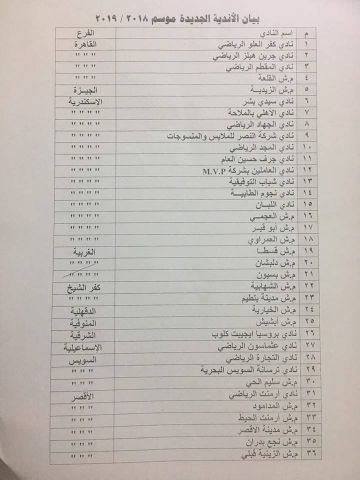 بيان الأندية الجديدة موسم ٢٠١٨ / ٢٠١٩
م اسم النادي الفرع
١ نادي كفر العلو الرياضي القاهرة
٢ نادي جرين هيلز الرياضي " " "
٣ نادي المقطم الرياضي " " "
٤ م.ش القلعة " " "
٥ م.ش الزيدية الجيزة
٦ نادي سيدي بشر الاسكندرية
٧ نادي الاهلي بالملاحة " " "
٨ نادي الجهاد الرياضي " " "
٩ نادي شركة النصر للملابس والمنسوجات " " "
١٠ نادي المجد الرياضي " " "
١١ نادي جرف حسين العام " " "
١٢ نادي العاملين بشركة M.V.P " " "
١٣ نادي شباب التوفيقية " " "
١٤ نادي نجوم الطابية " " "
١٥ نادي اللبان " " "
١٦ م.ش العجمي " " "
١٧ م.ش أبو قير " " "
١٨ م.ش العمراوي " " "
١٩ م.ش قسطا الغربية
٢٠ م.ش دلبشان " " "
٢١ م.ش بسيون " " "
٢٢ م.ش الشهابية كفر الشيخ
٢٣ م.ش مدينة بلطيم " " "
٢٤ م.ش الخيارية الدقهلية
٢٥ م.ش ابشيش المنوفية
٢٦ نادي بروسيا ايجيبت كلوب الشرقية
٢٧ نادي عثماسون الرياضي الاسماعيلية
٢٨ نادي التجارة الرياضي السويس
٢٩ نادي ترسانة السويس البحرية " " "
٣٠ م.ش سليم الحي " " "
٣١ نادي أرمنت الرياضي الأقصر
٣٢ م.ش المدامود " " "
٣٣ م.ش أرمنت الحيط " " "
٣٤ م.ش مدينة الاقصر " " "
٣٥ م.ش نجع بدران " " "
٣٦ م.ش الزينية قبلي " " "